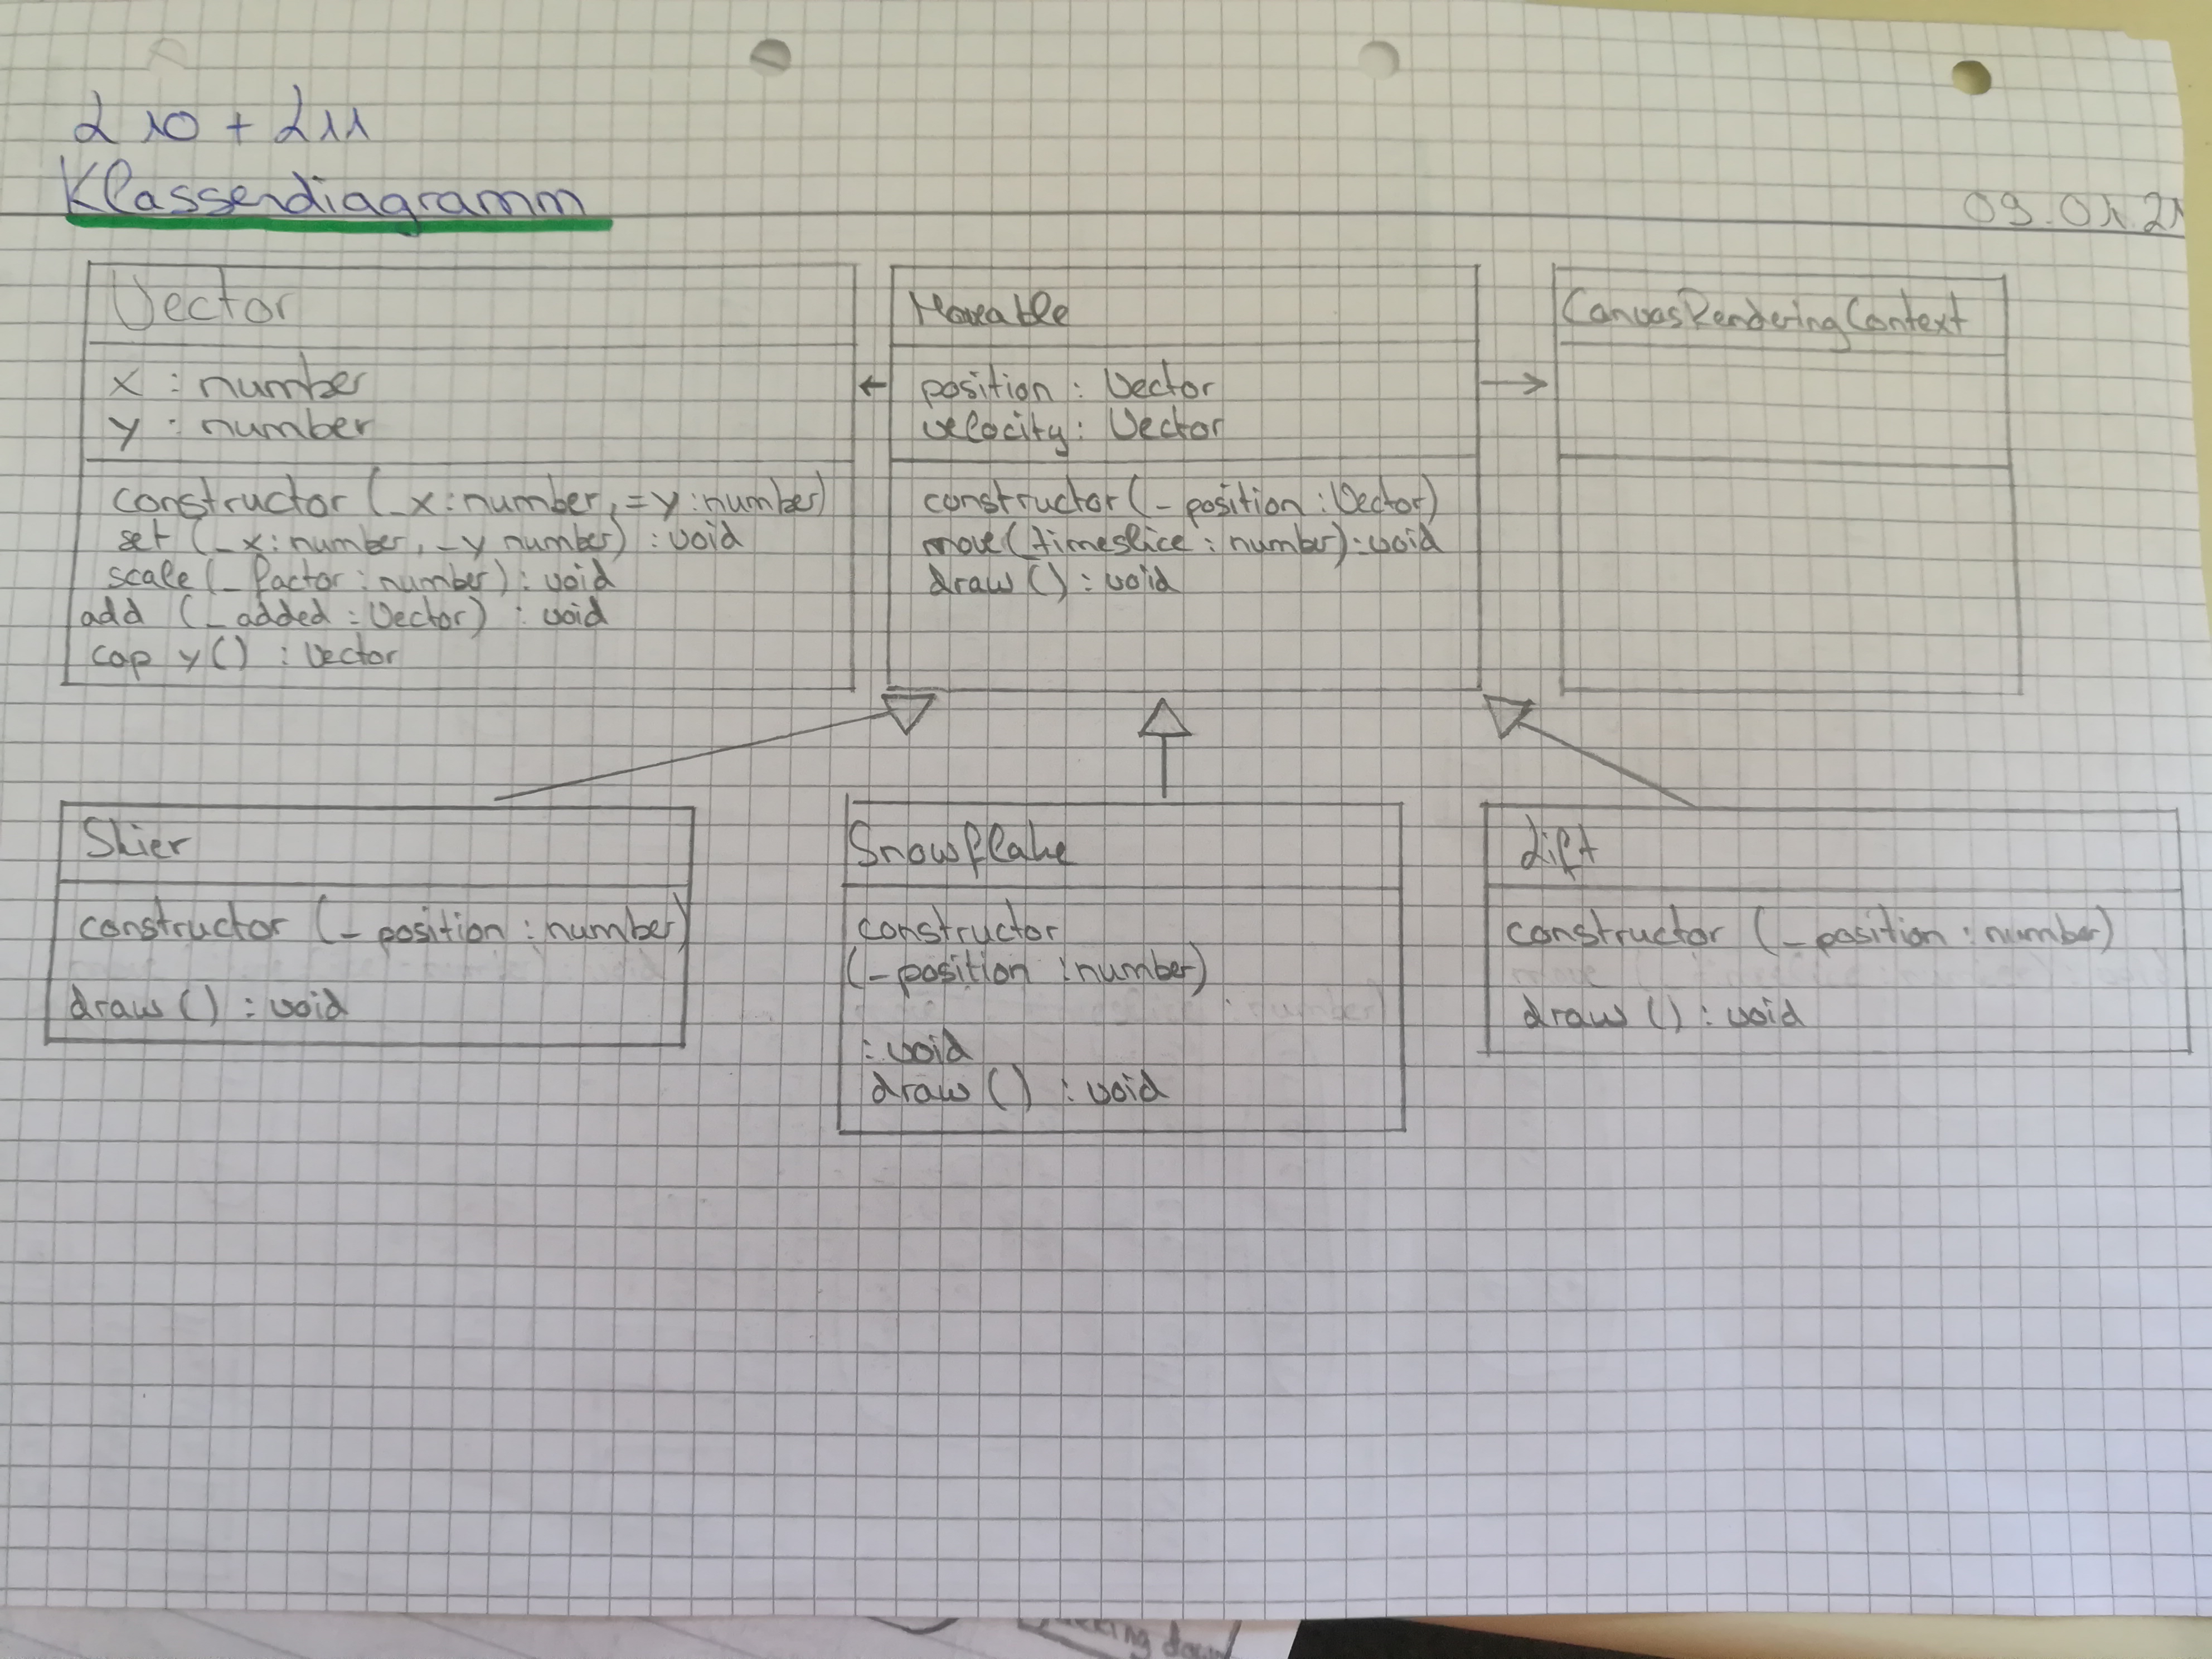 L10 + L11
Klassendiagramm
09.01.21
Vector
x : number
y : number
constructor (_x:number, =y:number)
set (_x:number, _y number) : void
scale (_factor : number) : void
add (_added : Vector) : void
copy () : Vector
Moveable
position : Vector
velocity : Vector
constructor (_position : Vector)
move (timeslice : number) : void
draw () : void
CanvasRenderingContext
Skier
constructor (_position : number)
draw () : void
Snowflake
constructor
(_position : number)
: void
draw () : void
Lift
constructor (_position : number)
draw () : void